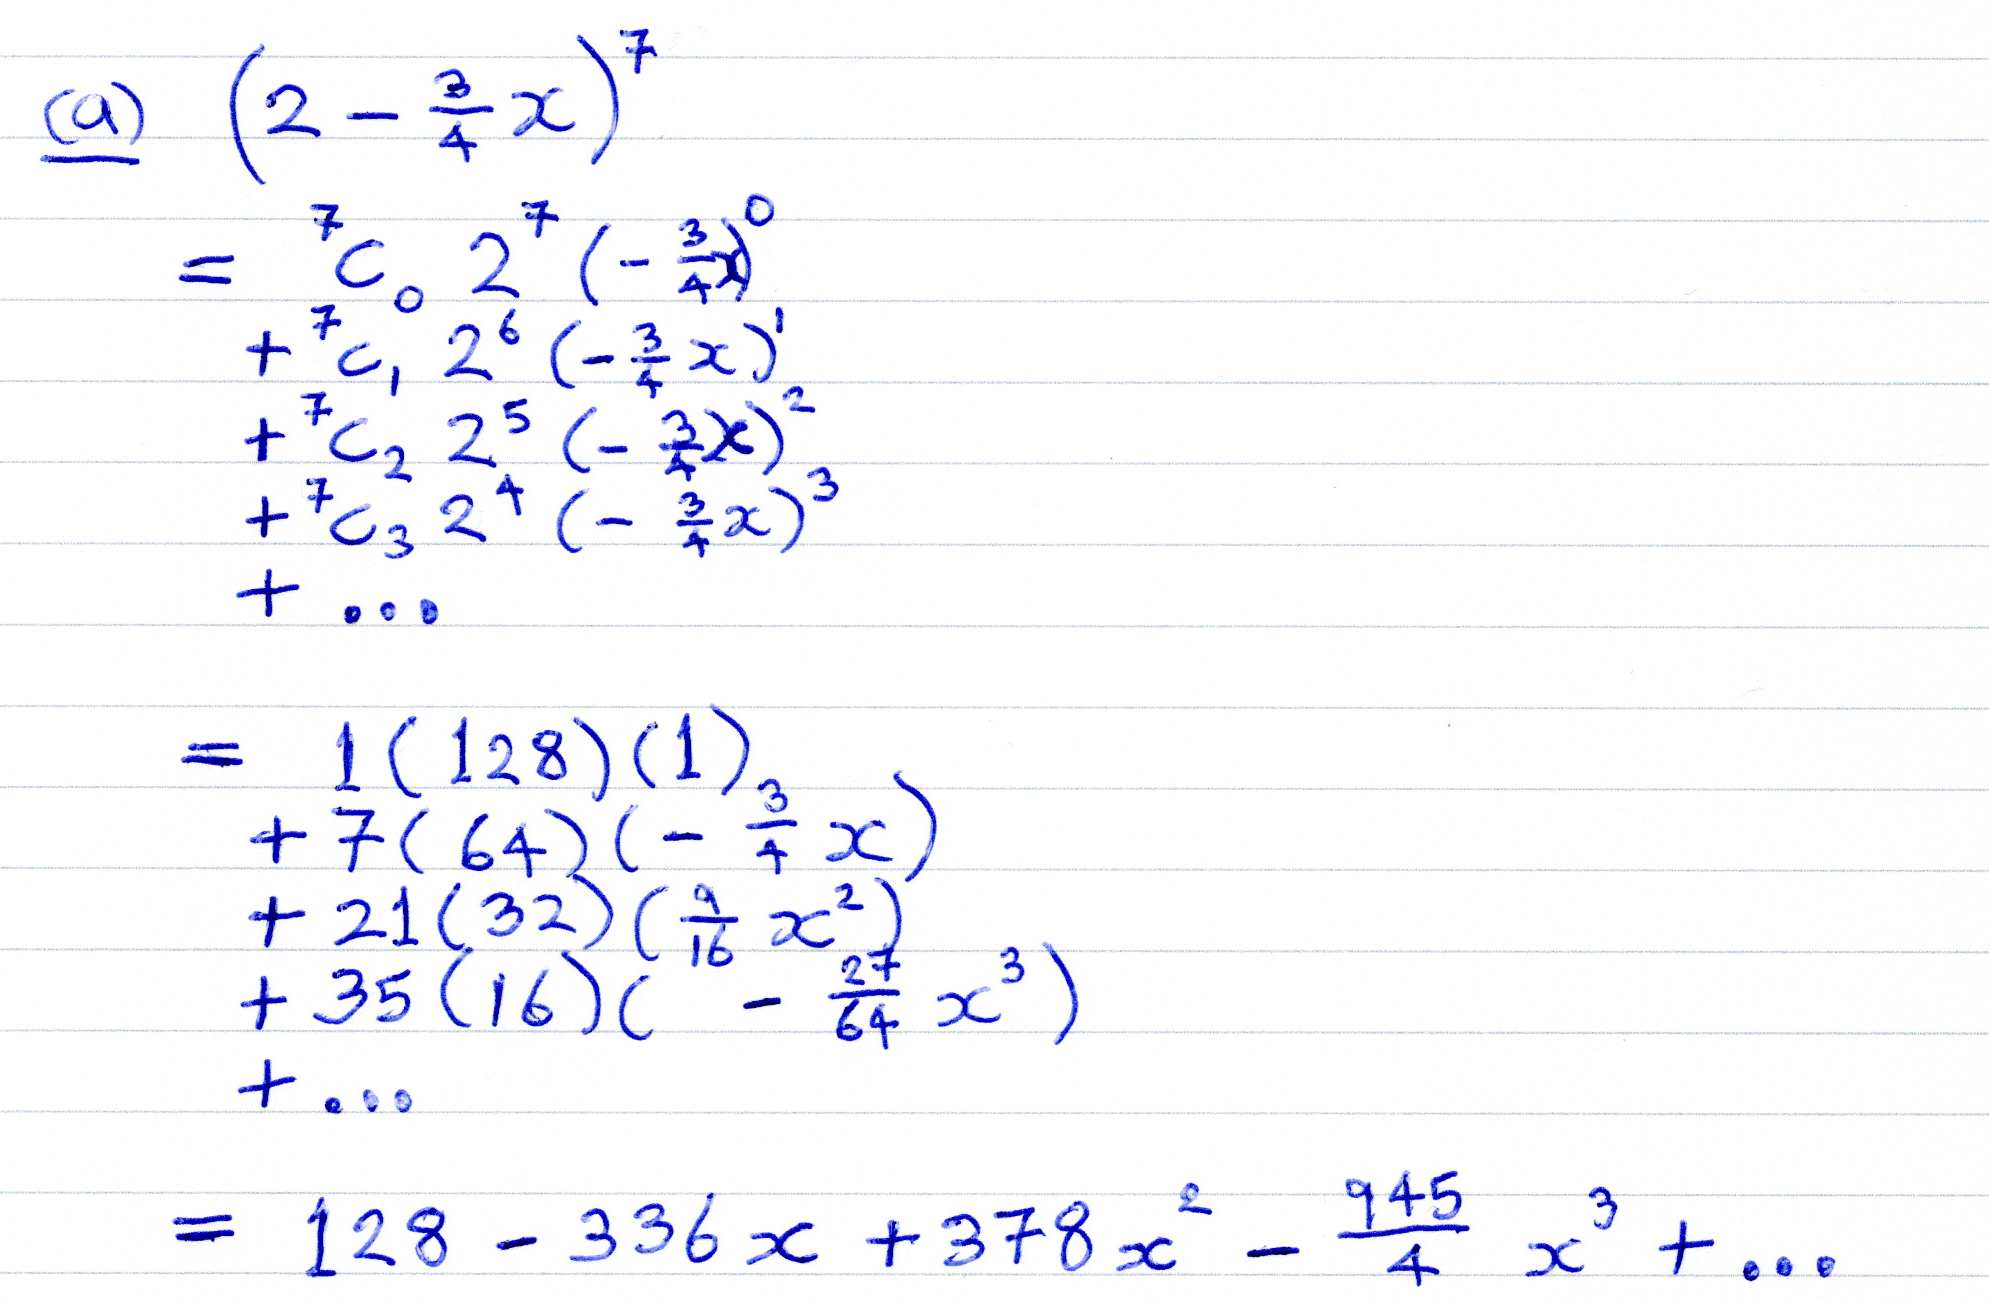 (a) (2 - 3/4 x)^7
= ^7C_0 2^7 (- 3/4 x)^0
+ ^7C_1 2^6 (- 3/4 x)^1
+ ^7C_2 2^5 (- 3/4 x)^2
+ ^7C_3 2^4 (- 3/4 x)^3
+ ...
= 1(128)(1)
+ 7(64)(- 3/4 x)
+ 21(32)(9/16 x^2)
+ 35(16)( - 27/64 x^3)
+ ...
= 128 - 336x + 378x^2 - 945/4 x^3 + ...